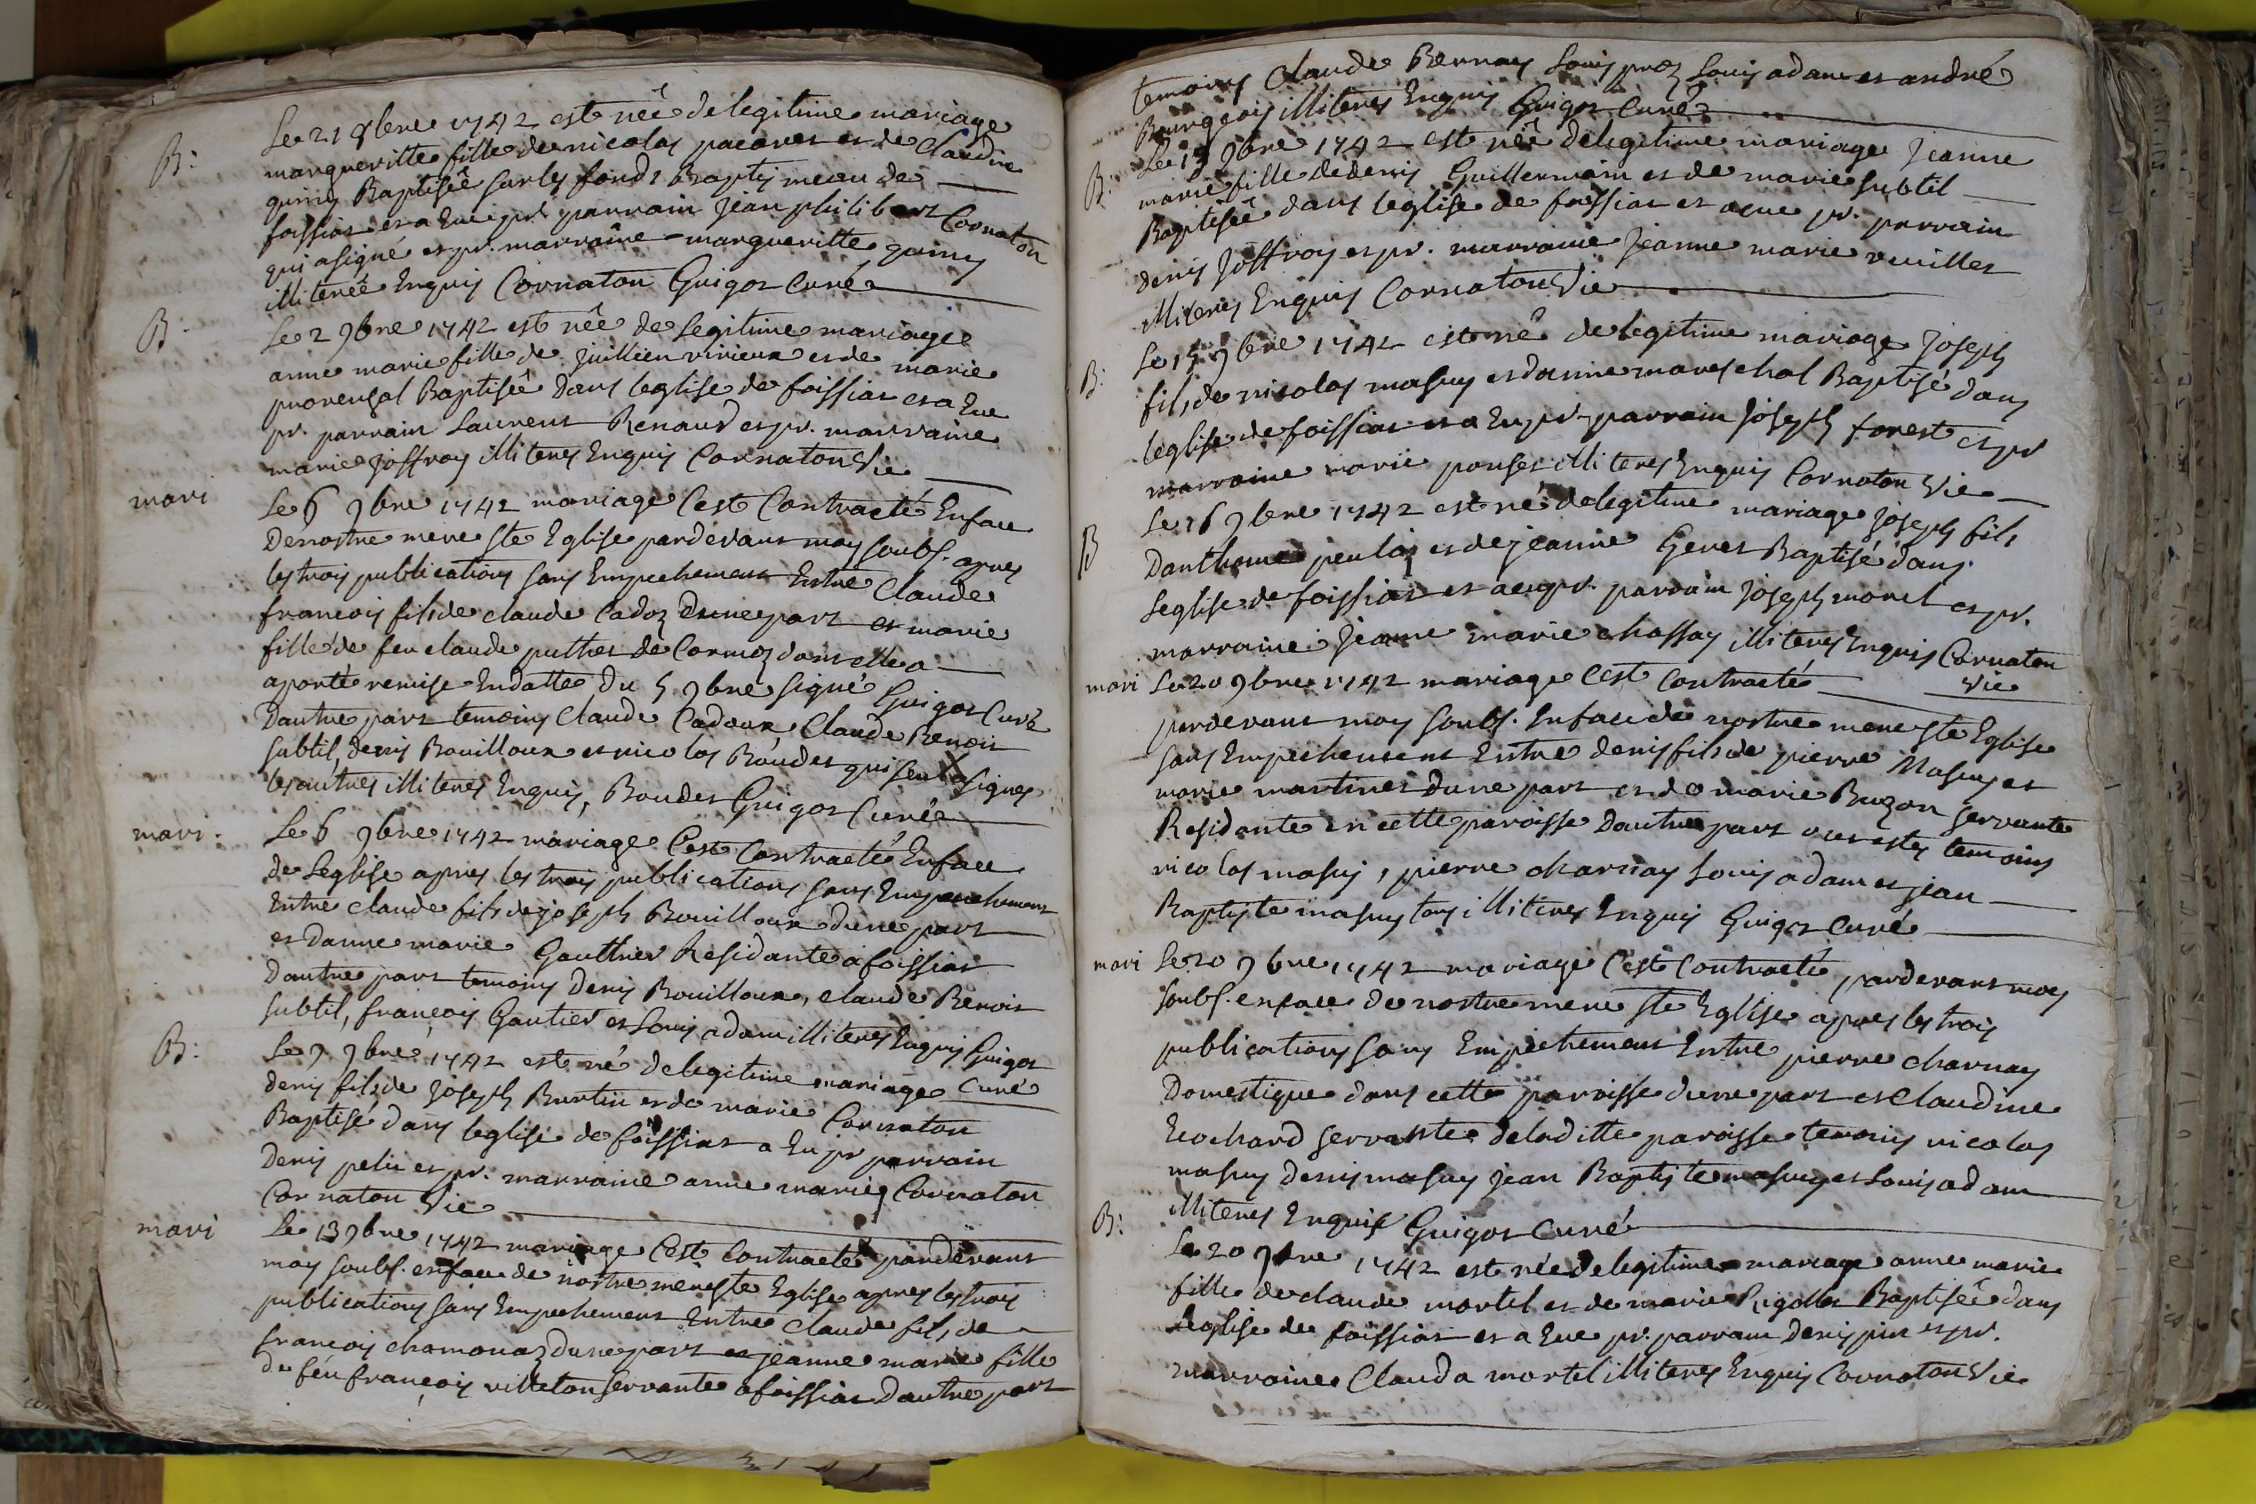 B: Le 21 8bre 1742 est née de legitime mariage
margueritte fille de nicolas pacaret et de Claudine
quiny Baptisée sur les fonds Baptismeau de
foissiat et a Eue pr. parrain jean philibert Cornaton
qui a signé et pr. marraine margueritte quiny
illiterée Enquis Cornaton Guigot Curé
B. Le 2 9bre 1742 est née de Legitime mariage
anne marie fille de juillien vivieux et de marie
provensal Baptisée Dans leglise de foissiat et a Eue
pr. parrain Laurent Renaud et pr. marraine
marie joffray illiteres Enquis Cornaton Vic
mari Le 6 9bre 1742 mariage C'est Contracté En face
De nostre mere Ste Eglise pardevant moy soubs. apres
les trois publications sans Empechement Entre Claude
francois fils de claude Cadoz D'une part et marie
fille de feu claude puthet de Cormoz dont elle a
aporté remise En datte Du 5 9bre signé Guigot Curé
Dautre part temoins Claude Cadoux Claude Benoit
subtil, denis Bouilloux et nicolas Boudet qui seul a signes
les autres illiteres Enquis, Boudet Guigot Curé
mari. Le 6 9bre 1742 mariage C'est Contracté En face
de Leglise apres les trois publications sans Empechement
Entre claude fils de joseph Bouilloux d'une part
et d'anne marie Gauthier Residante a foissiat
Dautre part temoins Denis Bouilloux, claude Benoit
subtil, françois Gautier et Louis adam illiteres Enquis Guigot
Curé
B: Le 9 9bre 1742 est né de legitime mariage
denis fils de joseph Burtin et de marie Cornaton
Baptisé dans leglise de foissiat a Eu pr parrain
Denis pelu et pr. marraine anne marie Cornaton
Cornaton Vic
mari Le 13 9bre 1742 mariage C'est Contracté pardevant
moy soubs. en face de nostre mere Ste Eglise apres les trois
publications sans Empechement Entre Claude fils de
françois chamonaz d'une part et jeanne marie fille
de feu françois villeton servante a foissiat Dautre part
temoins Claude Bernay Louis proz Louis adam et andré
Bourgeois illiteres Enquis Guigot Curé
B: Le 15 9bre 1742 est née de legitime mariage Jeanne
marie fille de denis Guillermain et de marie subtil
Baptisée dans leglise de foissiat et a eue pr. parrain
denis Joffray et pr. marraine Jeanne marie veuillet
illiteres Enquis Cornaton Vic
B: Le 15 9bre 1742 est né de legitime mariage Joseph
fils de nicolas masuy et d'anne mareschal Baptisé dans
leglise de foissiat et a Eu pr. parrain Joseph forest et pr
marraine marie ponset illiteres Enquis Cornaton Vic
B Le 16 9bre 1742 est né de legitime mariage joseph fils
Danthome peulaz et de jeanne Geret Baptisé dans
Leglise de foissiat et a eu pr. parrain joseph morel et pr.
marraine Jeanne marie chassay illiteres Enquis Cornaton
Vic
mari Le 20 9bre 1742 mariage C'est Contracté
pardevant moy soubs. En face de nostre mere Ste Eglise
sans Empechement Entre denis fils de pierre Masuy et
marie martinet d'une part et de marie Buzon servante
Residante en cette paroisse Dautre part temoins
nicolas masuy, pierre charnay Louis adam et jean
Baptiste masuy tous illiteres Enquis Guigot Curé
mari Le 20 9bre 1742 mariage C'est Contracté pardevant moy
soubs. en face de nostre mere Ste Eglise apres les trois
publications sans Empechement Entre pierre charnay
Domestique dans cette paroisse d'une part et Claudine
Ecochard servante de laditte paroisse temoins nicolas
masuy Denis masuy jean Baptiste masuy et Louis adam
illiteres Enquis Guigot Curé
B: Le 20 9bre 1742 est née de legitime mariage anne marie
fille de claude mortel et de marie Rigollet Baptisée dans
Leglise de foissiat et a Eue pr. parrain denis pin et pr.
marraine Clauda mortel illiteres Enquis Cornaton Vic